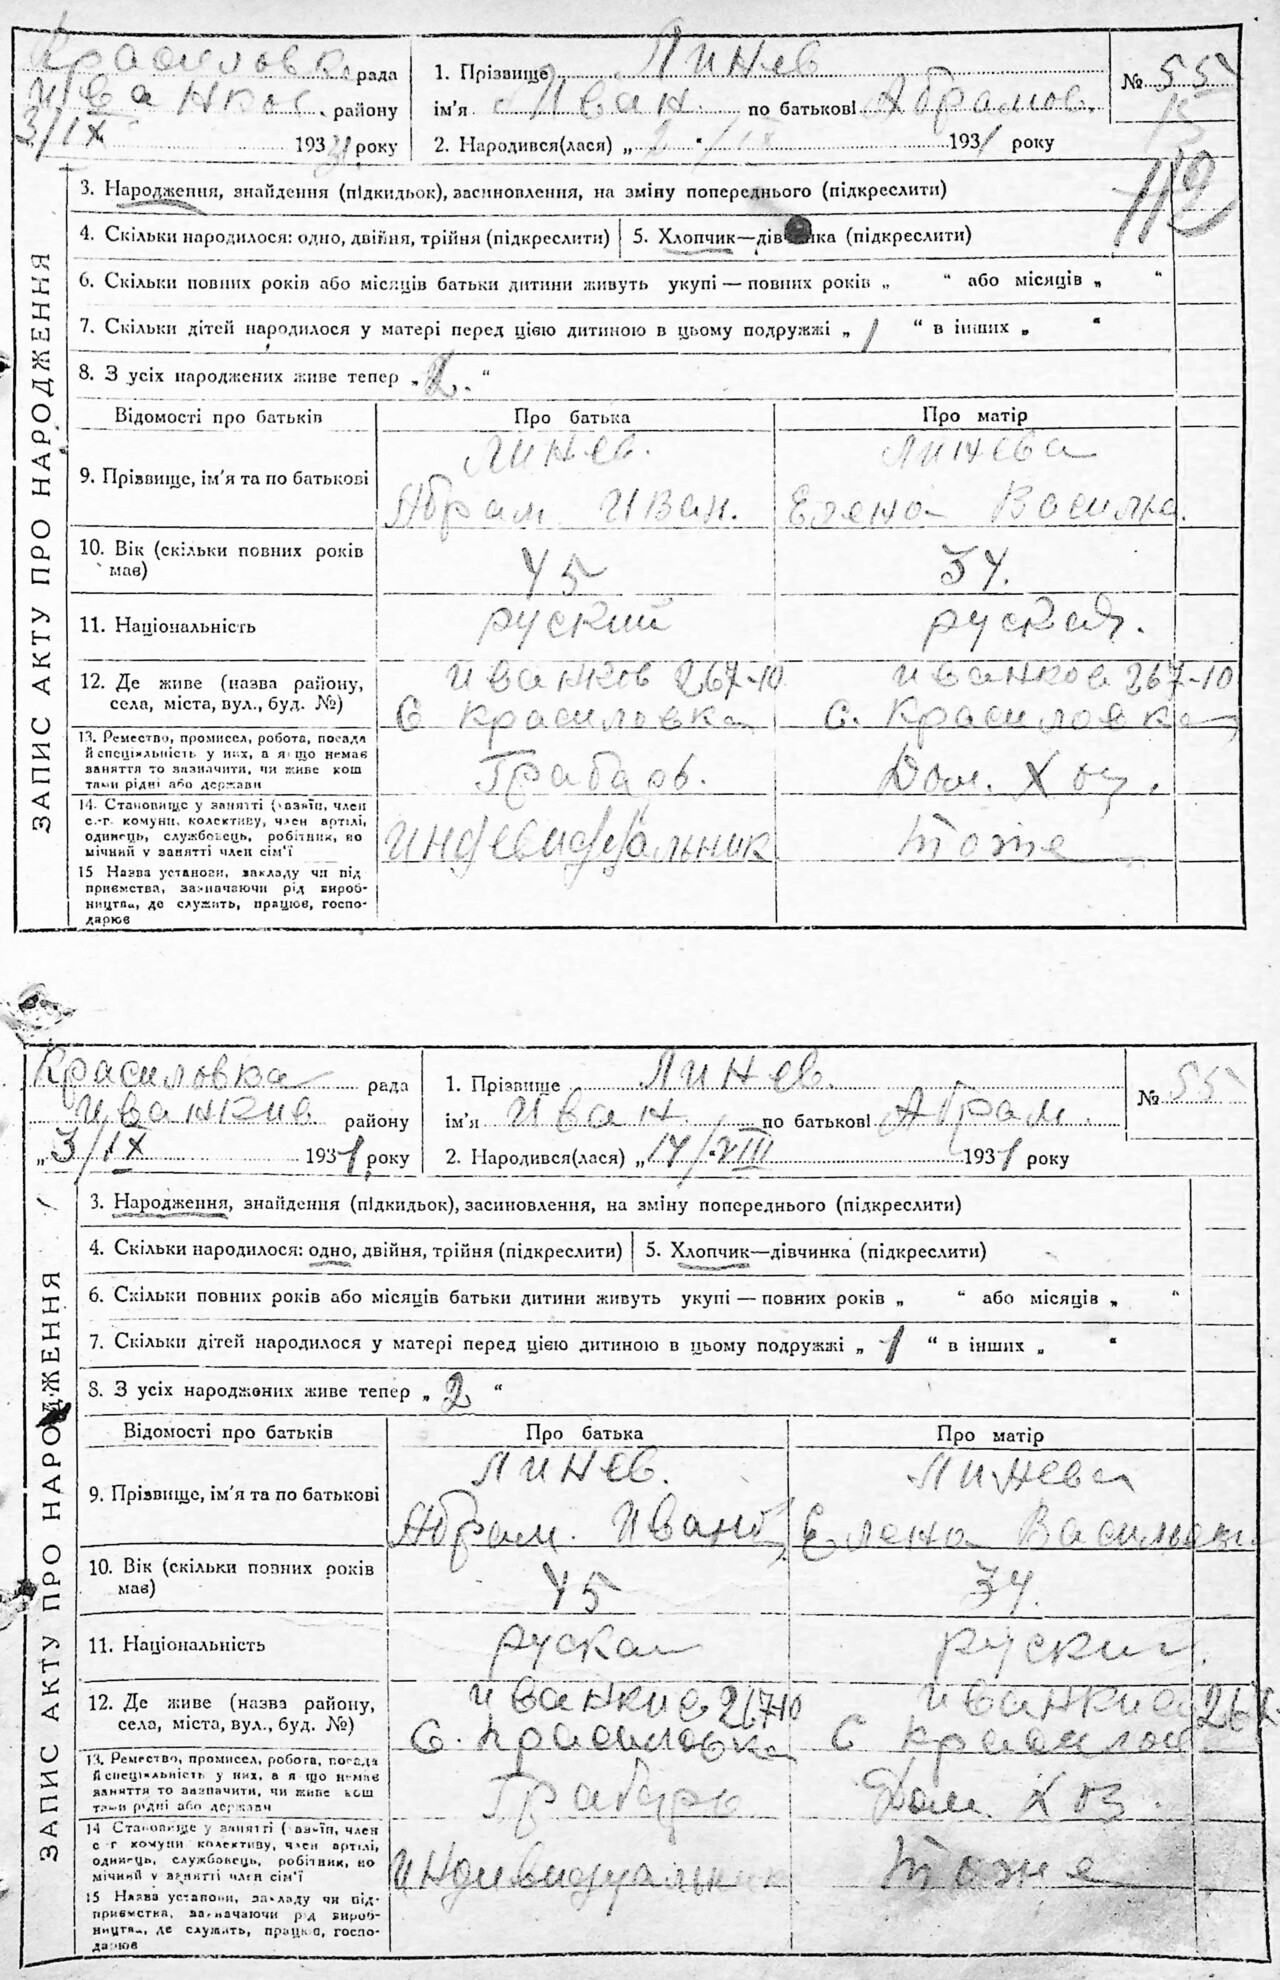 Красиловка рада
Иванков району
3/IX 1931 року
1. Прізвище Линев
ім'я Иван по батькові Абрамов.
2. Народився(лася) „ 2 “ /IX 1931 року
№ 55
112
ЗАПИС АКТУ ПРО НАРОДЖЕННЯ
3. Народження, знайдення (підкидьок), засиновлення, на зміну попереднього (підкреслити)
4. Скільки народилося: одно, двійня, трійня (підкреслити)
5. Хлопчик—дівчинка (підкреслити)
6. Скільки повних років або місяців батьки дитини живуть укупі — повних років „ “ або місяців „ “
7. Скільки дітей народилося у матері перед цією дитиною в цьому подружжі „ 1 “ в інших „ “
8. З усіх народжених живе тепер „ 2. “
Відомості про батьків
Про батька
Про матір
9. Прізвище, ім'я та по батькові
Линев.
Абрам Иван.
Линева
Елена
10. Вік (скільки повних років
має)
45
34.
11. Національність
руский
руская.
12. Де живе (назва району,
села, міста, вул., буд. №)
Иванков 267-10
С Красиловка
Иванков 267-10
С. Красиловка
13. Ремество, промисел, робота, посада
й спеціяльність у них, а якщо немає
заняття то зазначити, чи живе кош
тами рідні або держави
Грабарь.
Дом. Хоз.
14. Становище у занятті (хазяїн, член
с.-г комуни, колективу, член артілі,
одинець, службовець, робітник, по
мічний у занятті член сім'ї
Индевидуальник
тоже
15 Назва установи, закладу чи під
приємства, зазначаючи рід вироб-
ництва, де служить, працює, госпо-
дарює
Красиловка рада
Иванкив району
„ 3/IX 1931 року
1. Прізвище Линев.
ім'я Иван по батькові Абрам.
2. Народився(лася) „ 14/VIII 1931 року
№ 55
ЗАПИС АКТУ ПРО НАРОДЖЕННЯ
3. Народження, знайдення (підкидьок), засиновлення, на зміну попереднього (підкреслити)
4. Скільки народилося: одно, двійня, трійня (підкреслити)
5. Хлопчик—дівчинка (підкреслити)
6. Скільки повних років або місяців батьки дитини живуть укупі — повних років „ “ або місяців „ “
7. Скільки дітей народилося у матері перед цією дитиною в цьому подружжі „ 1 “ в інших „ “
8. З усіх народжених живе тепер „ 2 “
Відомості про батьків
Про батька
Про матір
9. Прізвище, ім'я та по батькові
Линев.
Абрам. Иванов
Линева
Елена
10. Вік (скільки повних років
має)
45
34.
11. Національність
руская
руский
12. Де живе (назва району,
села, міста, вул., буд. №)
Иванкив 267-10
С. Красиловка
Иванкив 267
С Красилов
13. Ремество, промисел, робота, посада
й спеціяльність у них, а якщо немає
заняття то зазначити, чи живе кош
тами рідні або держави
Грабарь
Дом Хоз.
14 Становище у занятті (хазяїн, член
с г комуни колективу, член артілі,
одинець, службовець, робітник, по
мічний у занятті член сім'ї
Индивидуальник
тоже
15 Назва установи, закладу чи під-
приємства, зазначаючи рід вироб-
ництва, де служить, працює, госпо-
дарює